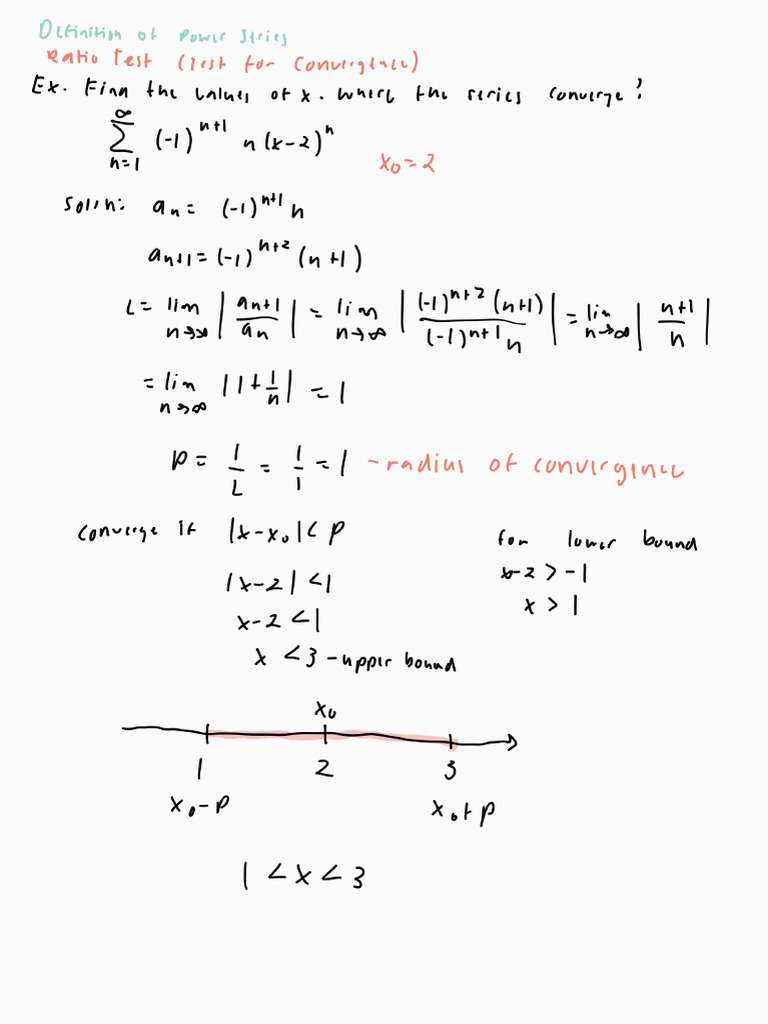 Definition of Power Series
Ratio Test (Test for Convergence)
Ex. Find the values of x. where the series converge?
∞
∑ (-1)^{n+1} n(x-2)^n
n=1
x₀=2
Sol'n: aₙ= (-1)^{n+1} n
aₙ₊₁=(-1)^{n+2} (n+1)
L= lim_{n→∞} | aₙ₊₁/aₙ | = lim_{n→∞} | (-1)^{n+2} (n+1) / (-1)^{n+1} n | = lim_{n→∞} | n+1/n |
= lim_{n→∞} |1+1/n| = 1
ρ= 1/L = 1/1 =1 - radius of convergence
converge if |x-x₀|< ρ
for lower bound
|x-2| <1
x-2 > -1
x-2 <1
x > 1
x <3 - upper bound
x₀
1 2 3
x₀-ρ x₀+ρ
1 < x < 3